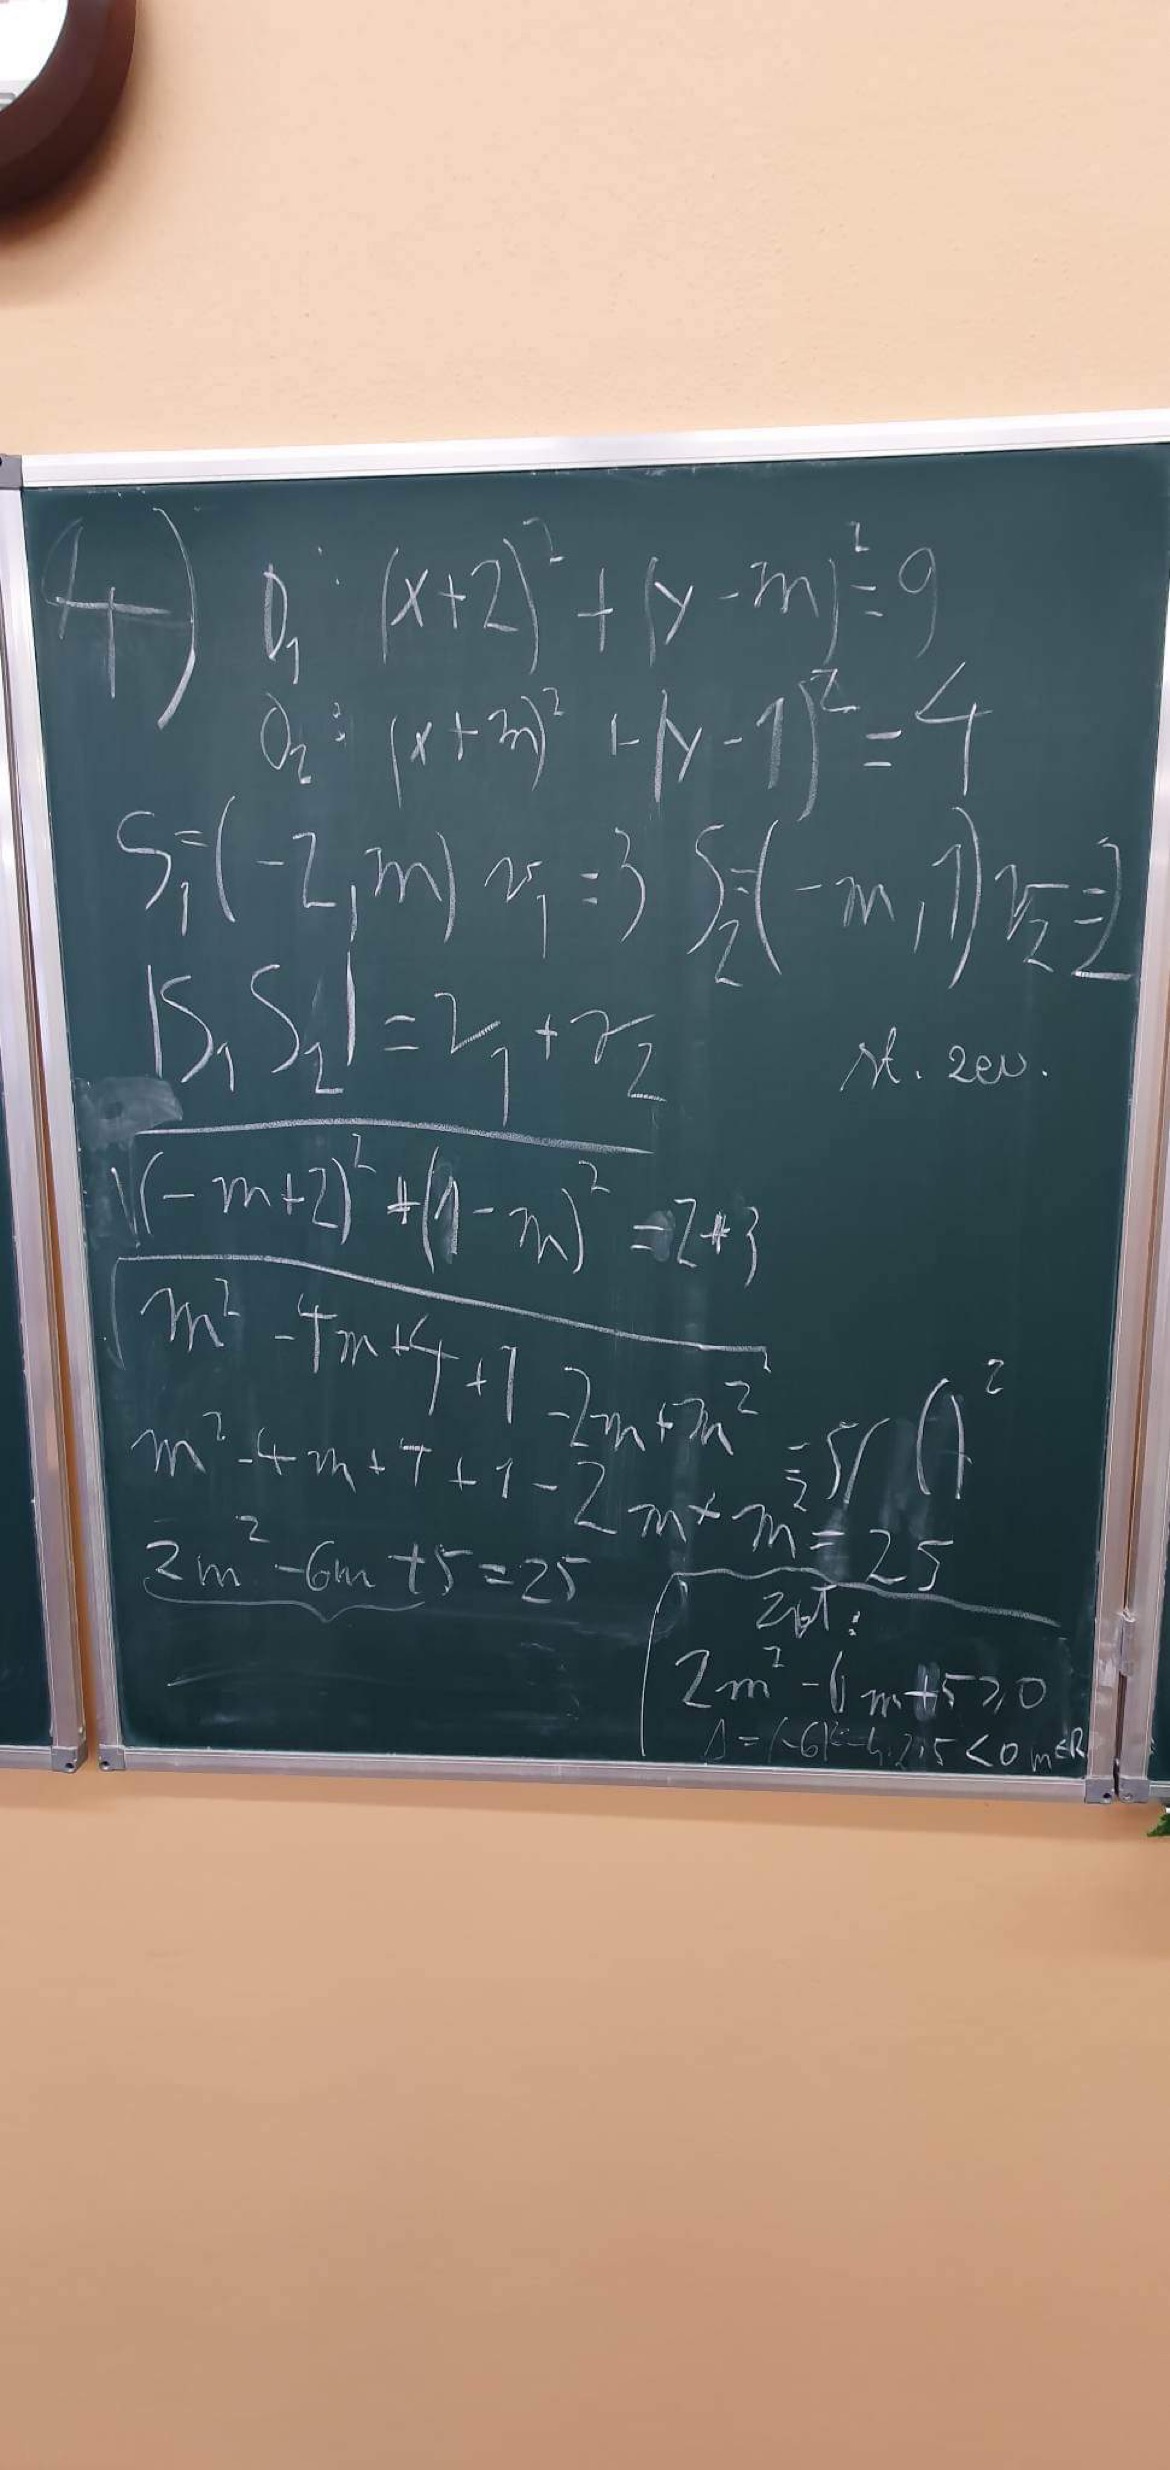 4) O₁: (x+2)² + (y-m)² = 9
O₂: (x+m)² + (y-1)² = 4
S₁=(-2,m) r₁=3 S₂=(-m,1) r₂=2
|S₁S₂| = r₁ + r₂ st. zew.
√((-m+2)² + (1-m)²) = 2+3
√(m² - 4m + 4 + 1 - 2m + m²) = 5 / ()²
m² - 4m + 4 + 1 - 2m + m² = 25
2m² - 6m + 5 = 25
zał:
2m² - 6m + 5 ⩾ 0
Δ = (-6)² - 4·2·5 < 0 m∈R